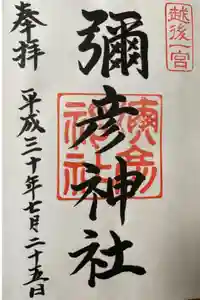 越後一宮
彌彦神社
奉拝
平成三十年七月二十五日